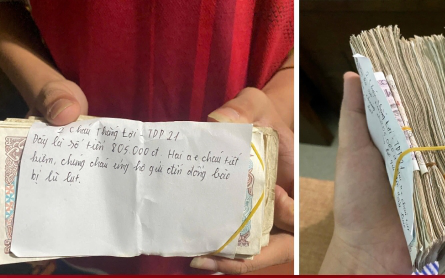 2 cháu Thắng Lợi - TDP 21
Đây là số tiền 805.000đ Hai a e cháu tiết
kiệm, chúng cháu ủng hộ gửi đến đồng bào
bị lũ lụt.